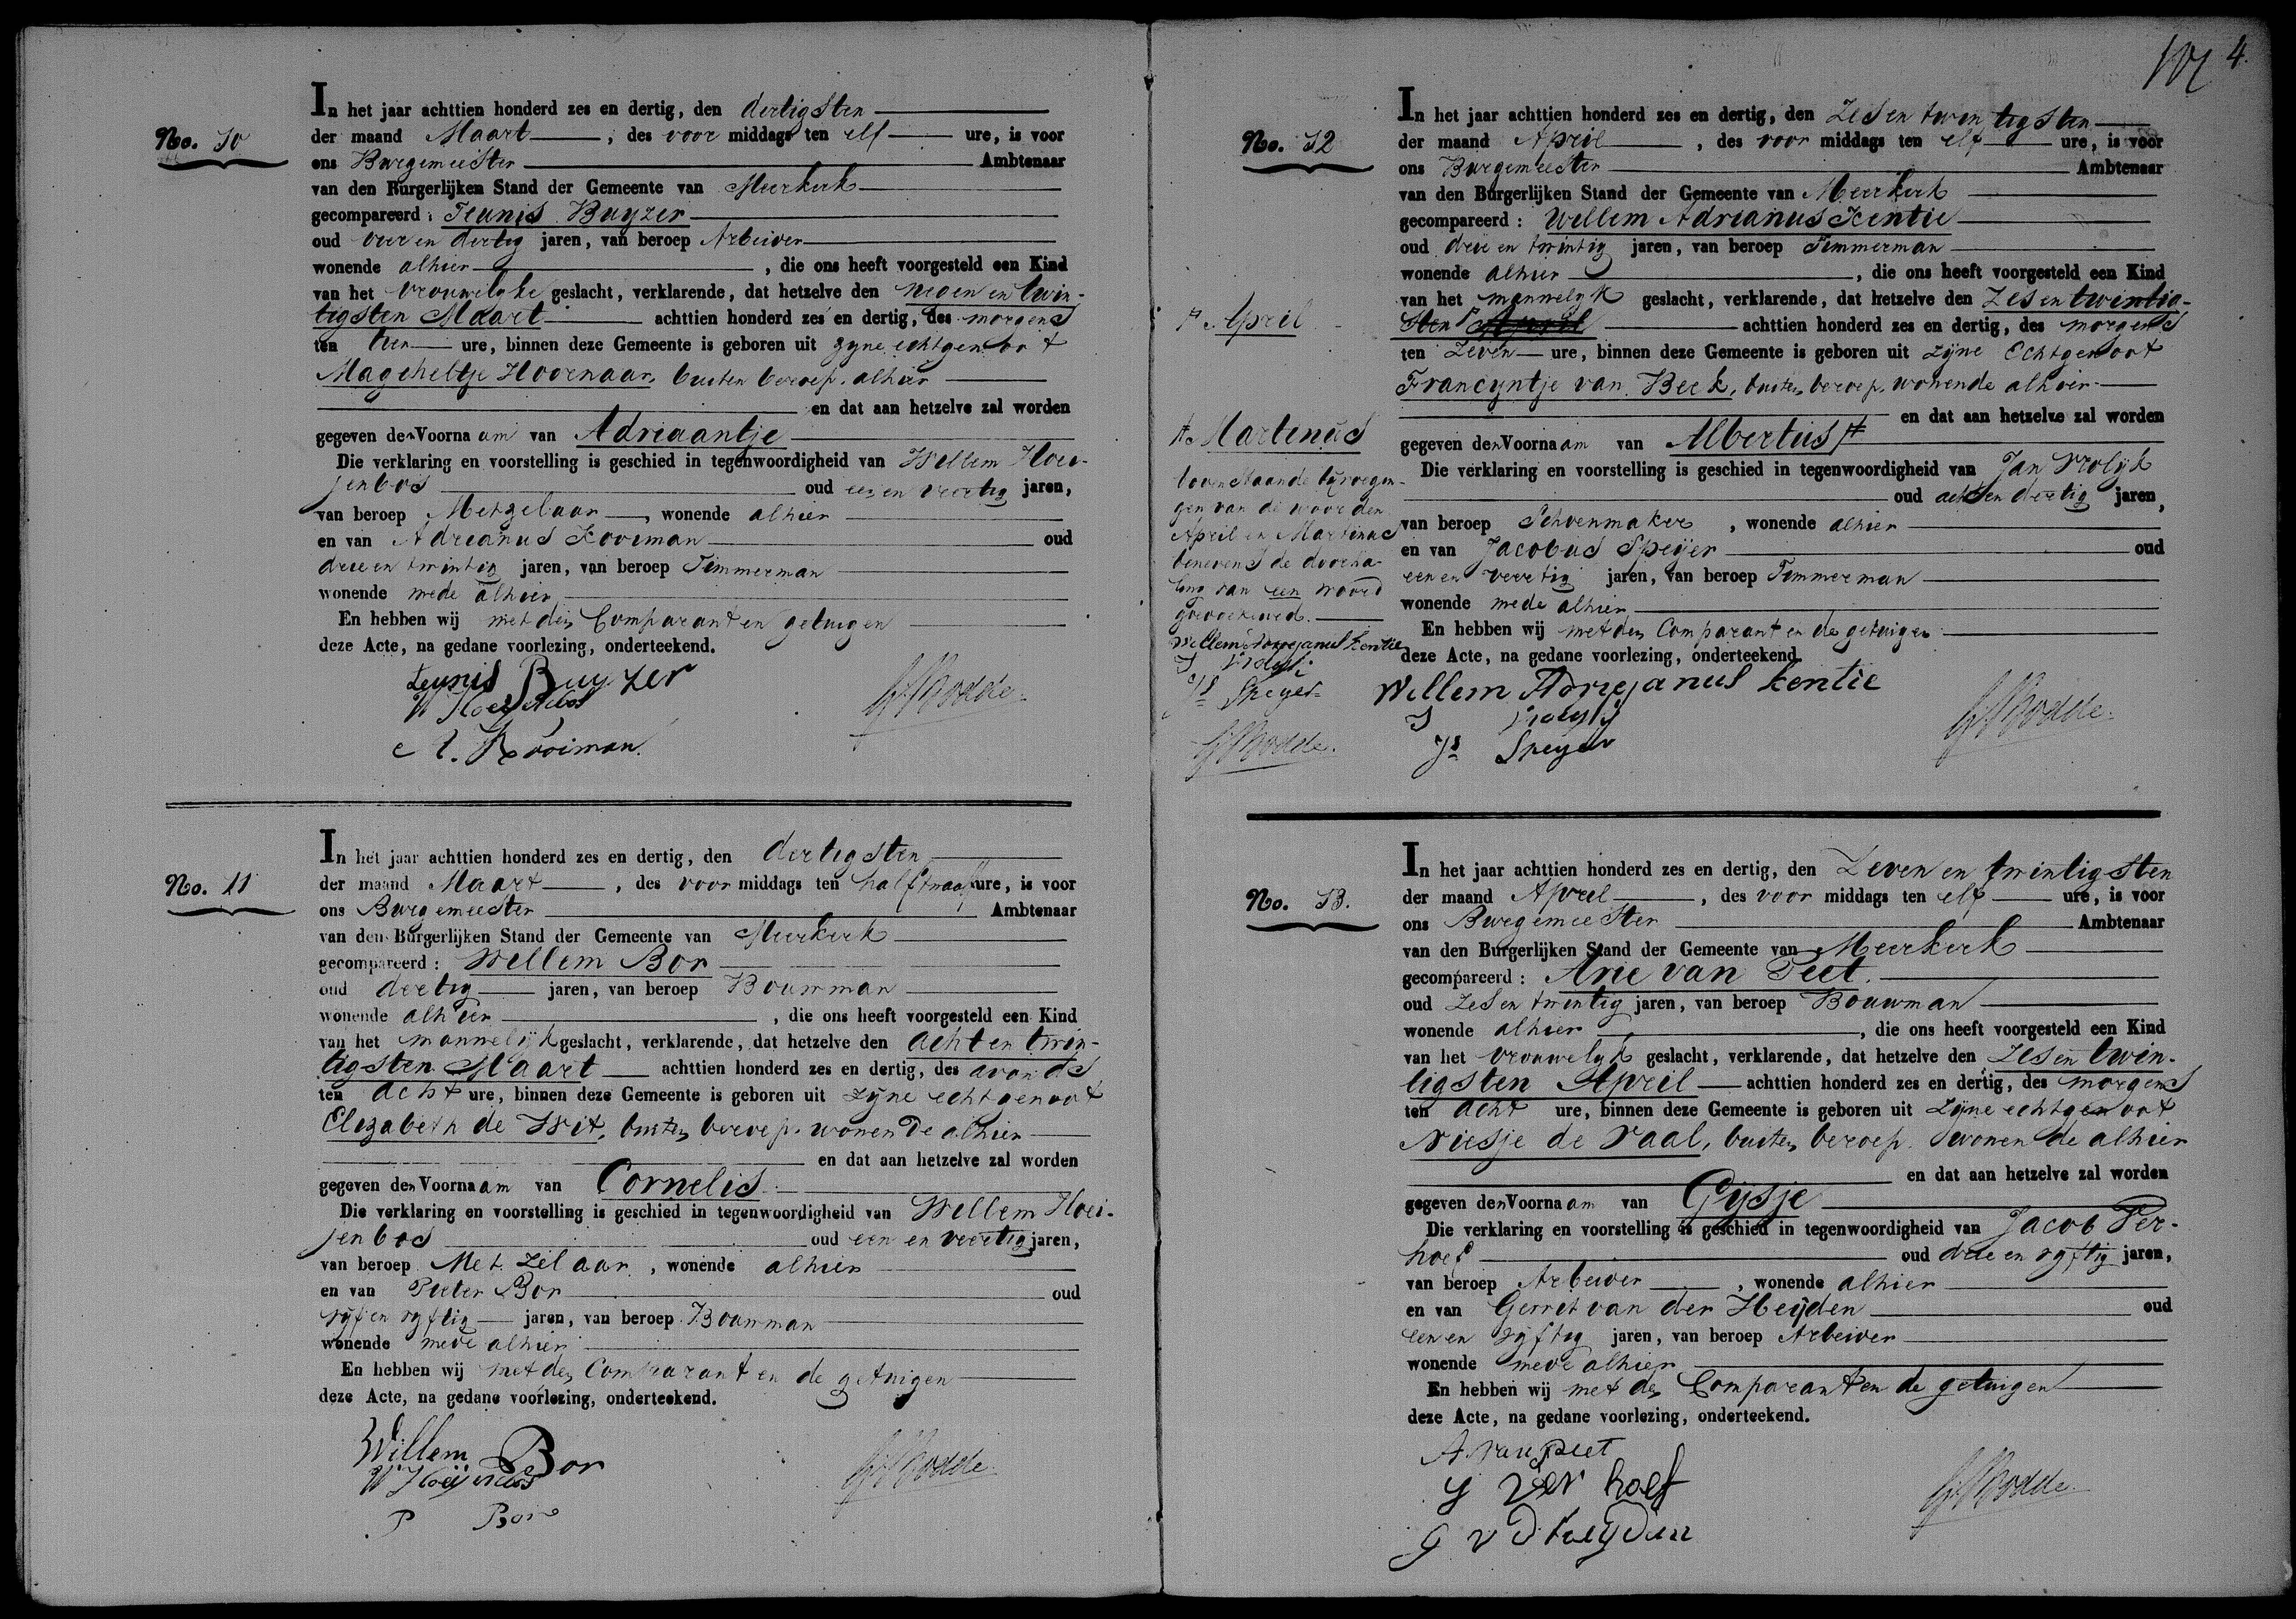 No. 10
In het jaar achttien honderd zes en dertig, den dertigsten
der maand Maart, des voor middags ten elf ure, is voor
ons Burgemeester Ambtenaar
van den Burgerlijken Stand der Gemeente van Meerkerk
gecompareerd: Teunis Buyzer
oud vier en dertig jaren, van beroep Arbeider
wonende alhier, die ons heeft voorgesteld een Kind
van het vrouwelyke geslacht, verklarende, dat hetzelve den negen en twin-
tigsten Maart achttien honderd zes en dertig, des morgens
ten tien ure, binnen deze Gemeente is geboren uit zyne echtgenoot
Magcheltje Hoornaar, buiten beroep, alhier
en dat aan hetzelve zal worden
gegeven den Voornaam van Adriaantje
Die verklaring en voorstelling is geschied in tegenwoordigheid van Willem Hoei-
jenbos oud een en veertig jaren,
van beroep Metzelaar, wonende alhier
en van Adrianus Kooiman oud
drie en twintig jaren, van beroep Timmerman
wonende mede alhier
En hebben wij met den Comparant en getuigen
deze Acte, na gedane voorlezing, onderteekend.
teunis Buyzer
W Hoeijenbos
A. Kooiman
No. 11
In het jaar achttien honderd zes en dertig, den dertigsten
der maand Maart, des voor middags ten half twaalf ure, is voor
ons Burgemeester Ambtenaar
van den Burgerlijken Stand der Gemeente van Meerkerk
gecompareerd: Willem Bor
oud dertig jaren, van beroep Bouwman
wonende alhier, die ons heeft voorgesteld een Kind
van het mannelijk geslacht, verklarende, dat hetzelve den acht en twin-
tigsten Maart achttien honderd zes en dertig, des avonds
ten acht ure, binnen deze Gemeente is geboren uit zyne echtgenoot
Elizabeth de Wit, buiten beroep, wonende alhier
en dat aan hetzelve zal worden
gegeven den Voornaam van Cornelis
Die verklaring en voorstelling is geschied in tegenwoordigheid van Willem Hoei-
jenbos oud een en veertig jaren,
van beroep Metzelaar, wonende alhier
en van Pieter Bor oud
vyf en vyftig jaren, van beroep Bouwman
wonende mede alhier
En hebben wij met den Comparant en de getuigen
deze Acte, na gedane voorlezing, onderteekend.
Willem Bor
W Hoeijenbos
P Bor
4.
No. 12
In het jaar achttien honderd zes en dertig, den Zes en twintigsten
der maand April, des voor middags ten elf ure, is voor
ons Burgemeester Ambtenaar
van den Burgerlijken Stand der Gemeente van Meerkerk
gecompareerd: Willem Adrianus Kentie
oud drie en twintig jaren, van beroep Timmerman
wonende alhier, die ons heeft voorgesteld een Kind
van het mannelyk geslacht, verklarende, dat hetzelve den Zes en twintig-
sten achttien honderd zes en dertig, des morgens
ten zeven ure, binnen deze Gemeente is geboren uit zyne Echtgenoot
Francyntje van Beek, buiten beroep, wonende alhier
en dat aan hetzelve zal worden
gegeven den Voornaam van Albertus #
Die verklaring en voorstelling is geschied in tegenwoordigheid van Jan Vrolyk
oud acht en dertig jaren,
van beroep Schoenmaker, wonende alhier
en van Jacobus Speijer oud
een en veertig jaren, van beroep Timmerman
wonende mede alhier
En hebben wij met den Comparant en de getuigen
deze Acte, na gedane voorlezing, onderteekend.
Willem Adriejanus kentie
J Vrolyk
Js Speyer
April
# Martinus
bovenstaande byvoegin-
gen van de woorden
April en Martinus
benevens de doorha-
ling van een woord
goedgekeurd.
Willem Adriejanus kentie
J Vrolyk
Js Speyer
No. 13.
In het jaar achttien honderd zes en dertig, den Zeven en twintigsten
der maand April, des voor middags ten elf ure, is voor
ons Burgemeester Ambtenaar
van den Burgerlijken Stand der Gemeente van Meerkerk
gecompareerd: Arie van Peet
oud zes en twintig jaren, van beroep Bouwman
wonende alhier, die ons heeft voorgesteld een Kind
van het vrouwelyk geslacht, verklarende, dat hetzelve den Zes en twin-
tigsten April achttien honderd zes en dertig, des morgens
ten acht ure, binnen deze Gemeente is geboren uit zyne echtgenoot
Niesje de Vaal, buiten beroep, wonende alhier
en dat aan hetzelve zal worden
gegeven den Voornaam van Gijsje
Die verklaring en voorstelling is geschied in tegenwoordigheid van Jacob Ver-
hoef oud drie en vyftig jaren,
van beroep Arbeider, wonende alhier
en van Gerret van der Heijden oud
een en vyftig jaren, van beroep Arbeider
wonende mede alhier
En hebben wij met den Comparant en de getuigen
deze Acte, na gedane voorlezing, onderteekend.
A. van Peet
J Ver hoef
G v d heyden